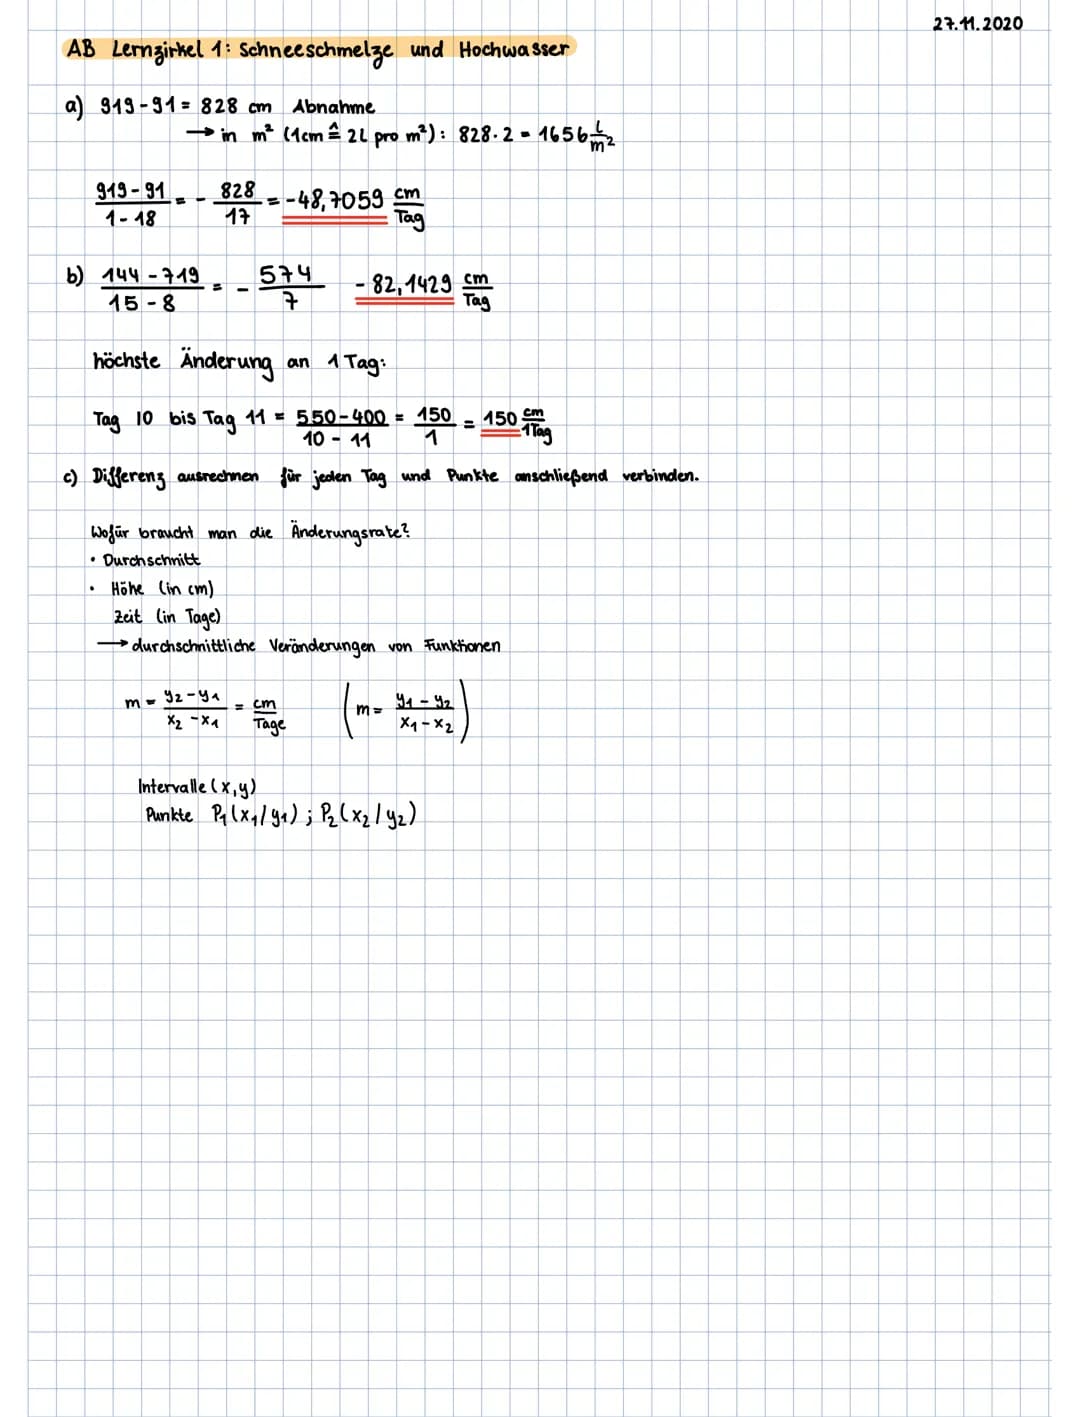 27.11.2020
AB Lernzirkel 1: Schneeschmelze und Hochwasser
a) 919-91 = 828 cm Abnahme
→ in m² (1cm ≙ 2L pro m²): 828·2 = 1656 L/m²
(919-91)/(1-18) = - 828/17 = -48,7059 cm/Tag
b) (144-719)/(15-8) = - 574/7 -82,1429 cm/Tag
höchste Änderung an 1 Tag:
Tag 10 bis Tag 11 = (550-400)/(10-11) = 150/1 = 150 cm/1Tag
c) Differenz ausrechnen für jeden Tag und Punkte anschließend verbinden.
Wofür braucht man die Änderungsrate?
• Durchschnitt
• Höhe (in cm)
Zeit (in Tage)
→ durchschnittliche Veränderungen von Funktionen
m = (y₂-y₁)/(x₂-x₁) = cm/Tage (m = (y₁-y₂)/(x₁-x₂))
Intervalle (x,y)
Punkte P₁(x₁/y₁); P₂(x₂/y₂)